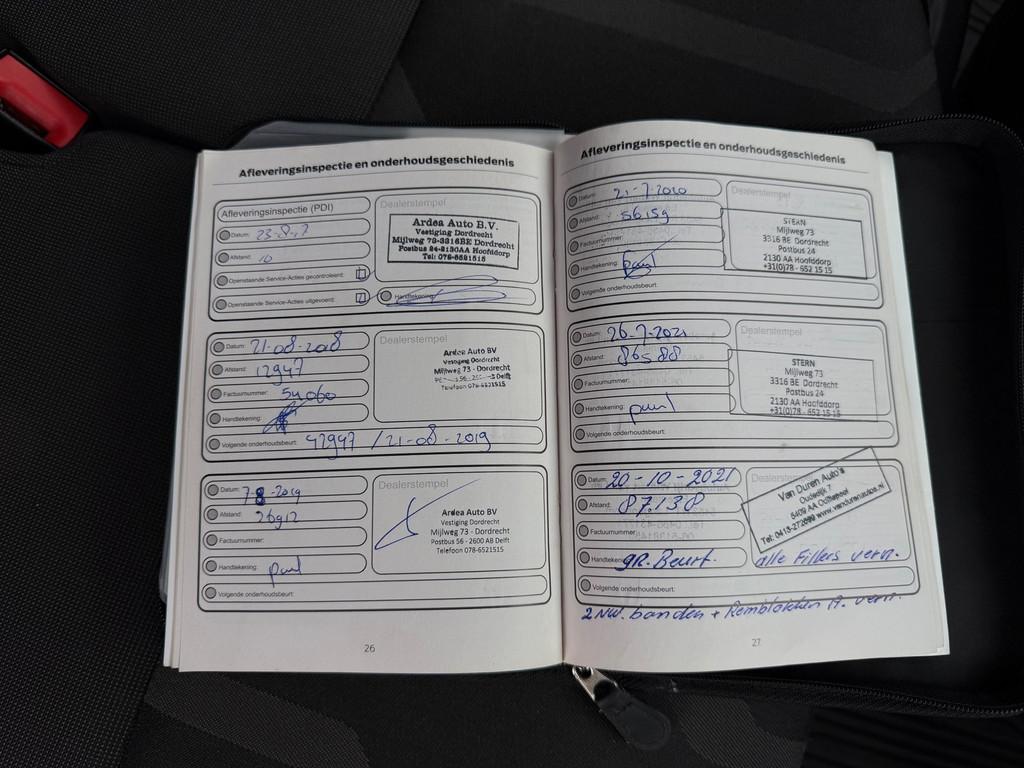 Afleveringsinspectie en onderhoudsgeschiedenis
Afleveringsinspectie (PDI)
Datum:
Afstand: 10
Openstaande Service-Acties gecontroleerd:
Openstaande Service-Acties uitgevoerd:
Dealerstempel
Ardea Auto B.V.
Vestiging Dordrecht
Mijlweg 73-3316BE Dordrecht
Postbus 24-2130AA Hoofddorp
Tel: 078-6521515
Handtekening:
Datum: 21-08-2018
Afstand: 12947
Factuurnummer: 54060
Handtekening:
Volgende onderhoudsbeurt: 42947 / 21-08-2019
Dealerstempel
Ardea Auto BV
Vestiging Dordrecht
Mijlweg 73 - Dordrecht
Delft
Telefoon 078-6521515
Datum: 7-8-2019
Afstand: 26912
Factuurnummer:
Handtekening: paul
Volgende onderhoudsbeurt:
Dealerstempel
Ardea Auto BV
Vestiging Dordrecht
Mijlweg 73 - Dordrecht
Postbus 56 - 2600 AB Delft
Telefoon 078-6521515
26
Afleveringsinspectie en onderhoudsgeschiedenis
Datum: 21-7-2020
Afstand: 56159
Factuurnummer:
Handtekening: paul
Volgende onderhoudsbeurt:
Dealerstempel
STERN
Mijlweg 73
3316 BE Dordrecht
Postbus 24
2130 AA Hoofddorp
+31(0)78 - 652 15 15
Datum: 26-7-2021
Afstand: 86588
Factuurnummer:
Handtekening: paul
Volgende onderhoudsbeurt:
Dealerstempel
STERN
Mijlweg 73
3316 BE Dordrecht
Postbus 24
2130 AA Hoofddorp
+31(0)78 - 652 15 15
Datum: 20-10-2021
Afstand: 87.130
Factuurnummer:
Handtekening: gR. Beurt.
Volgende onderhoudsbeurt:
Dealerstempel
Van Duren Auto's
Oudedijk 7
5409 AA Odiliapeel
Tel: 0413-272699 www.vandurenautos.nl
alle Filters vern.
2 NW. banden + Remblokken A. vern.
27